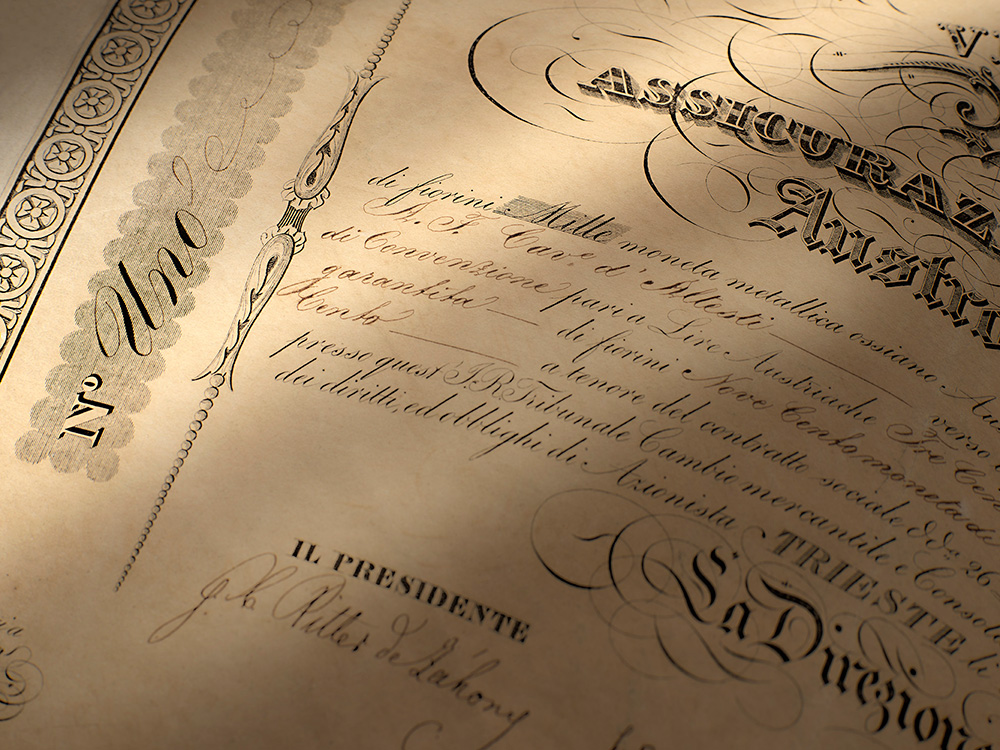 ASSICURAZ
Austr
Nº Uno
di fiorini Mille moneta metallica ossiano
di Convenzione pari a Lire Austriache
J. J. Cav.e d'Altesti
verso
garantita di fiorini Nove Cento moneta di
Cento a tenore del contratto sociale
presso quest I.R. Tribunale Cambio mercantile e Consol
dei diritti, ed obblighi di Azionista
TRIESTE li
La Direzion
IL PRESIDENTE
Ritter de Záhony